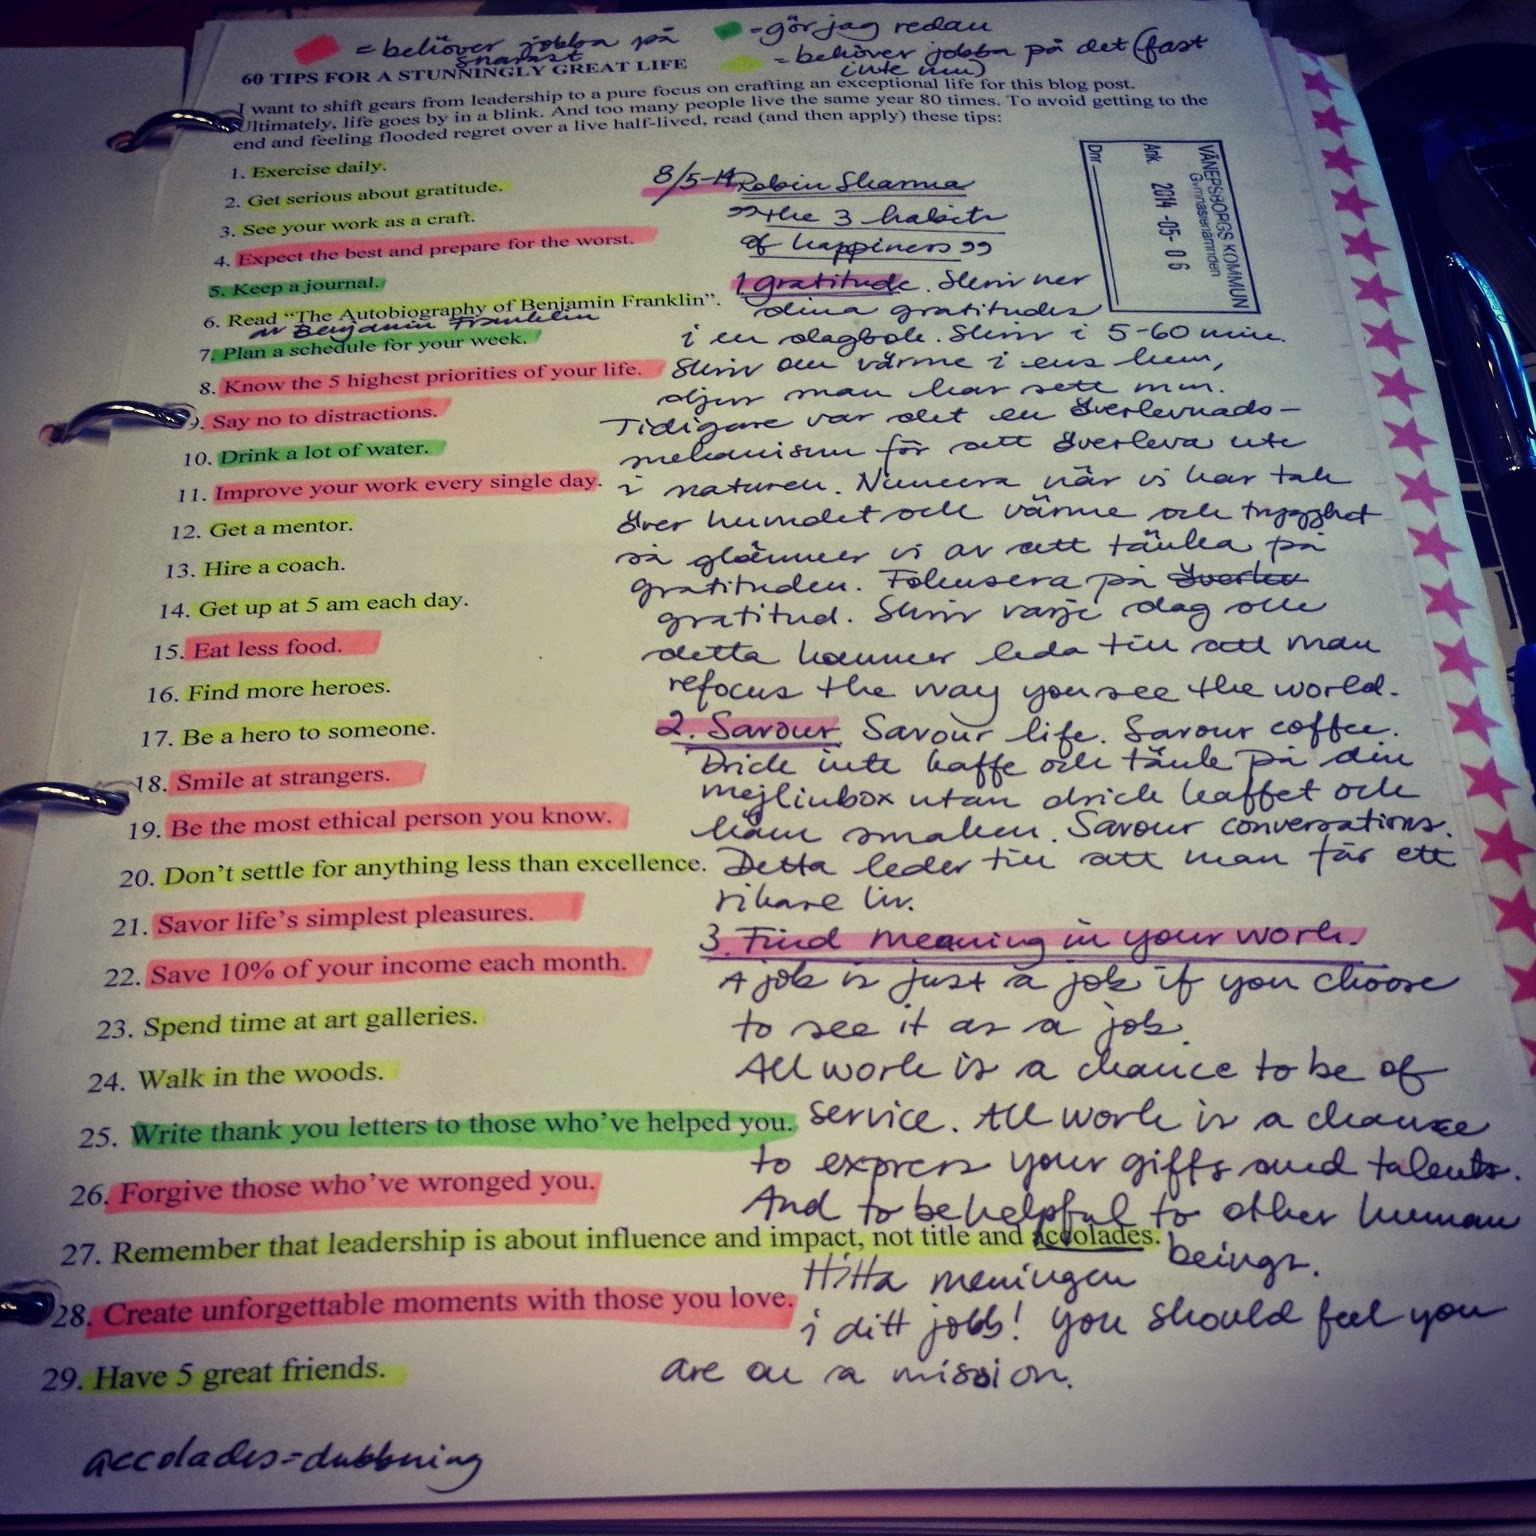 = behöver jobba på
snarast
= gör jag redan
= behöver jobba på det (fast
inte nu)
60 TIPS FOR A STUNNINGLY GREAT LIFE
I want to shift gears from leadership to a pure focus on crafting an exceptional life for this blog post.
Ultimately, life goes by in a blink. And too many people live the same year 80 times. To avoid getting to the
end and feeling flooded regret over a live half-lived, read (and then apply) these tips:
1. Exercise daily.
2. Get serious about gratitude.
3. See your work as a craft.
4. Expect the best and prepare for the worst.
5. Keep a journal.
6. Read “The Autobiography of Benjamin Franklin”.
av Benjamin Franklin
7. Plan a schedule for your week.
8. Know the 5 highest priorities of your life.
9. Say no to distractions.
10. Drink a lot of water.
11. Improve your work every single day.
12. Get a mentor.
13. Hire a coach.
14. Get up at 5 am each day.
15. Eat less food.
16. Find more heroes.
17. Be a hero to someone.
18. Smile at strangers.
19. Be the most ethical person you know.
20. Don’t settle for anything less than excellence.
21. Savor life’s simplest pleasures.
22. Save 10% of your income each month.
23. Spend time at art galleries.
24. Walk in the woods.
25. Write thank you letters to those who’ve helped you.
26. Forgive those who’ve wronged you.
27. Remember that leadership is about influence and impact, not title and accolades.
28. Create unforgettable moments with those you love.
29. Have 5 great friends.
accolades = dubbning
8/5-14 Robin Sharma
"the 3 habits
of happiness"
1. gratitude. Skriv ner
dina gratitudes
i en dagbok. Skriv i 5-60 min.
Skriv om värme i ens hem,
djur man har sett mm.
Tidigare var det en överlevnads-
mekanism för att överleva ute
i naturen. Numera när vi har tak
över huvudet och värme och trygghet
så glömmer vi av att tänka på
gratituden. Fokusera på överlev
gratitud. Skriv varje dag och
detta kommer leda till att man
refocus the way you see the world.
2. Savour Savour life. Savour coffee.
Drick inte kaffe och tänk på din
mejlinbox utan drick kaffet och
känn smaken. Savour conversations.
Detta leder till att man får ett
rikare liv.
3. Find meaning in your work.
A job is just a job if you choose
to see it as a job.
All work is a chance to be of
service. All work is a chance
to express your gifts and talents.
And to be helpful to other human
beings.
Hitta meningen
i ditt jobb! You should feel you
are on a mission.
VÄNERSBORGS KOMMUN
Gymnasienämnden
Ank. 2014 -05- 06
Dnr